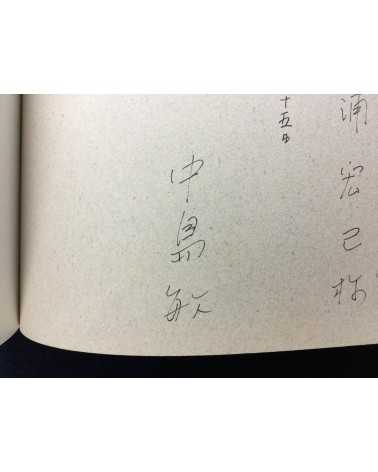 浦宏己様
十五日
中島敏